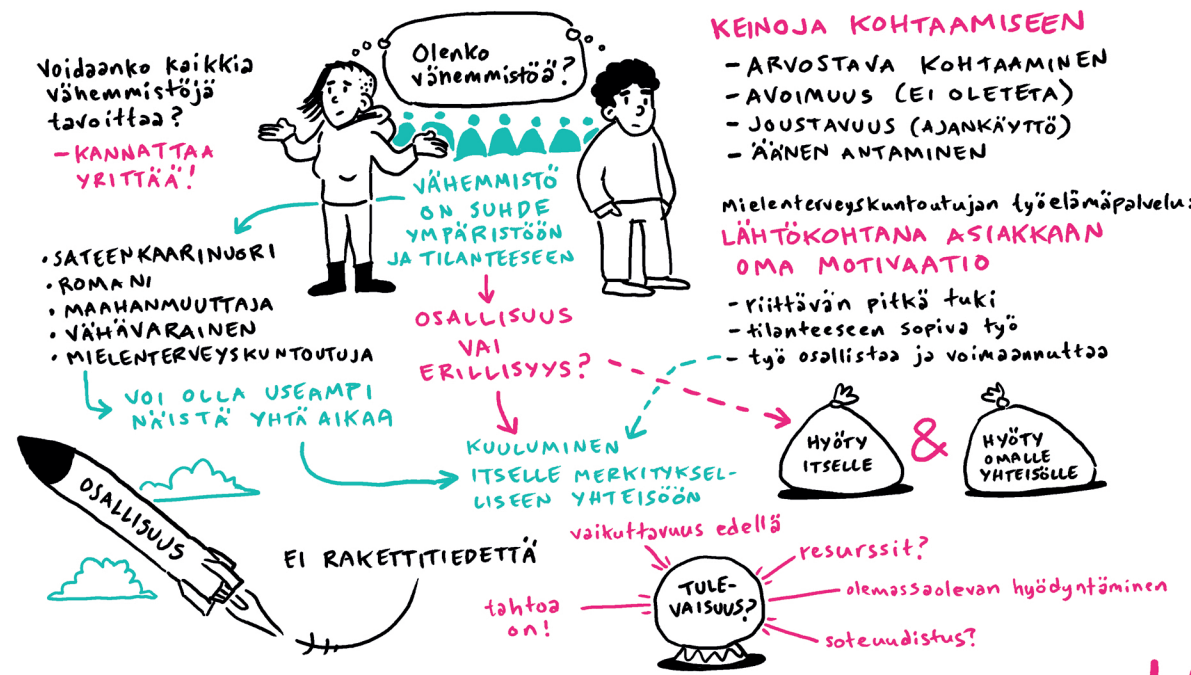 Voidaanko kaikkia
vähemmistöjä
tavoittaa?
- KANNATTAA
YRITTÄÄ!
Olenko
vähemmistöä?
VÄHEMMISTÖ
ON SUHDE
YMPÄRISTÖÖN
JA TILANTEESEEN
• SATEENKAARINUORI
• ROMANI
• MAAHANMUUTTAJA
• VÄHÄVARAINEN
• MIELENTERVEYSKUNTOUTUJA
VOI OLLA USEAMPI
NÄISTÄ YHTÄ AIKAA
OSALLISUUS
VAI
ERILLISYYS?
KUULUMINEN
ITSELLE MERKITYKSEL-
LISEEN YHTEISÖÖN
KEINOJA KOHTAAMISEEN
- ARVOSTAVA KOHTAAMINEN
- AVOIMUUS (EI OLETETA)
- JOUSTAVUUS (AJANKÄYTTÖ)
- ÄÄNEN ANTAMINEN
Mielenterveyskuntoutujan työelämäpalvelu:
LÄHTÖKOHTANA ASIAKKAAN
OMA MOTIVAATIO
- riittävän pitkä tuki
- tilanteeseen sopiva työ
- työ osallistaa ja voimaannuttaa
HYÖTY
ITSELLE
&
HYÖTY
OMALLE
YHTEISÖLLE
OSALLISUUS
EI RAKETTITIEDETTÄ
vaikuttavuus edellä
tahtoa
on!
TULE-
VAISUUS?
resurssit?
olemassaolevan hyödyntäminen
soteuudistus?